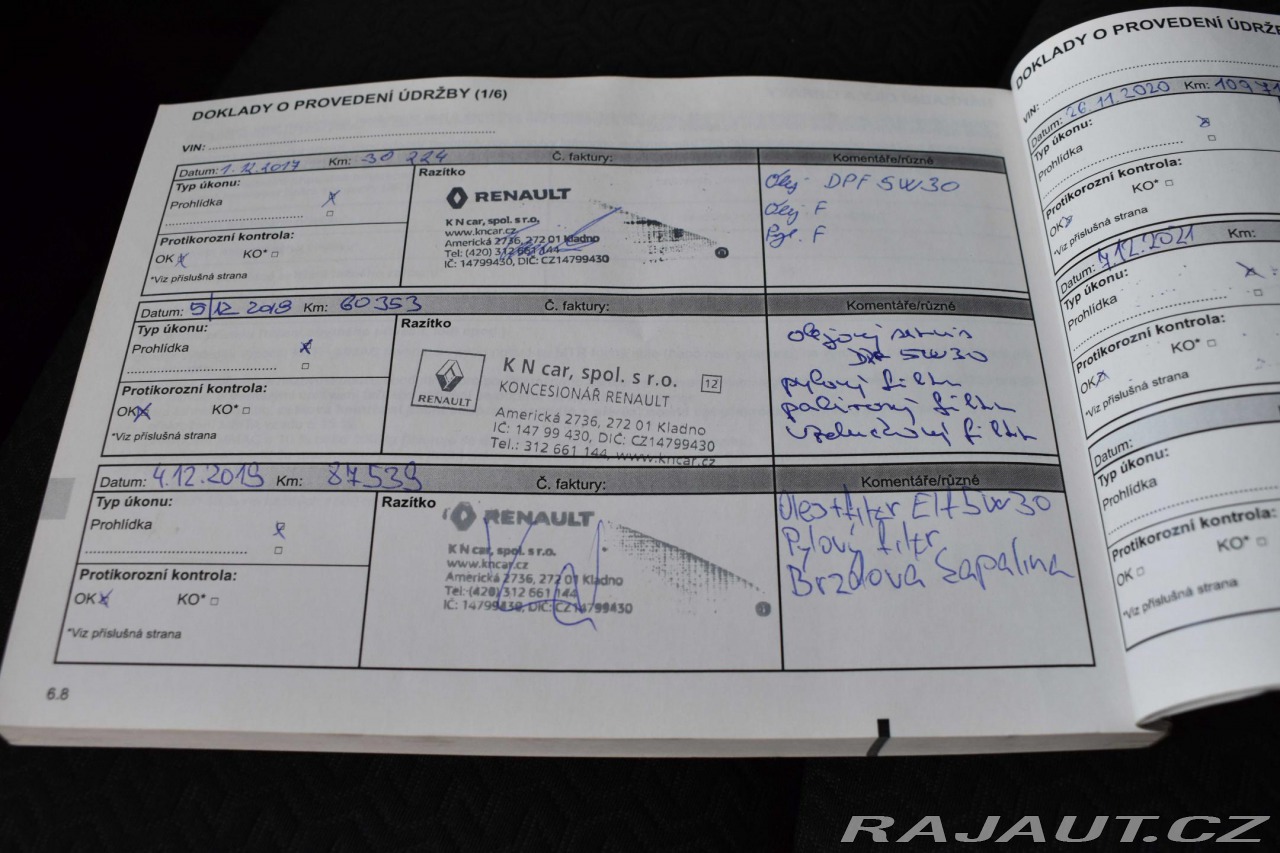 DOKLADY O PROVEDENÍ ÚDRŽBY (1/6)
VIN:
Datum: 1.12.2017 Km: 30 224 Č. faktury: Komentáře/různé
Typ úkonu:
Prohlídka
Protikorozní kontrola:
OK KO*
*Viz příslušná strana
Razítko
RENAULT
K N car, spol. s r.o.
www.kncar.cz
Americká 2736, 272 01 Kladno
Tel: (420) 312 661 144
IČ: 14799430, DIČ: CZ14799430
Olej DPF 5W30
Olej F
Pyl. F
Datum: 5/12 2018 Km: 60353 Č. faktury: Komentáře/různé
Typ úkonu:
Prohlídka
Protikorozní kontrola:
OK KO*
*Viz příslušná strana
Razítko
RENAULT
K N car, spol. s r.o. 12
KONCESIONÁŘ RENAULT
Americká 2736, 272 01 Kladno
IČ: 147 99 430, DIČ: CZ14799430
Tel.: 312 661 144, www.kncar.cz
olejový servis
DPF 5W30
pylový filtr
palivový filtr
vzduchový filtr
Datum: 4.12.2019 Km: 87539 Č. faktury: Komentáře/různé
Typ úkonu:
Prohlídka
Protikorozní kontrola:
OK KO*
*Viz příslušná strana
Razítko
RENAULT
K N car, spol. s r.o.
www.kncar.cz
Americká 2736, 272 01 Kladno
Tel: (420) 312 661 144
IČ: 14799430, DIČ: CZ14799430
Olej+filtr Elf 5W30
Pylový filtr
Brzdova kapalina
6.8
DOKLADY O PROVEDENÍ ÚDRŽB
VIN:
Datum: 26.11.2020 Km: 10971
Typ úkonu:
Prohlídka
Protikorozní kontrola:
OK KO*
*Viz příslušná strana
Datum: 7.12.2021 Km:
Typ úkonu:
Prohlídka
Protikorozní kontrola:
OK KO*
*Viz příslušná strana
Datum:
Typ úkonu:
Prohlídka
Protikorozní kontrola:
OK KO*
*Viz příslušná strana
RAJAUT.CZ